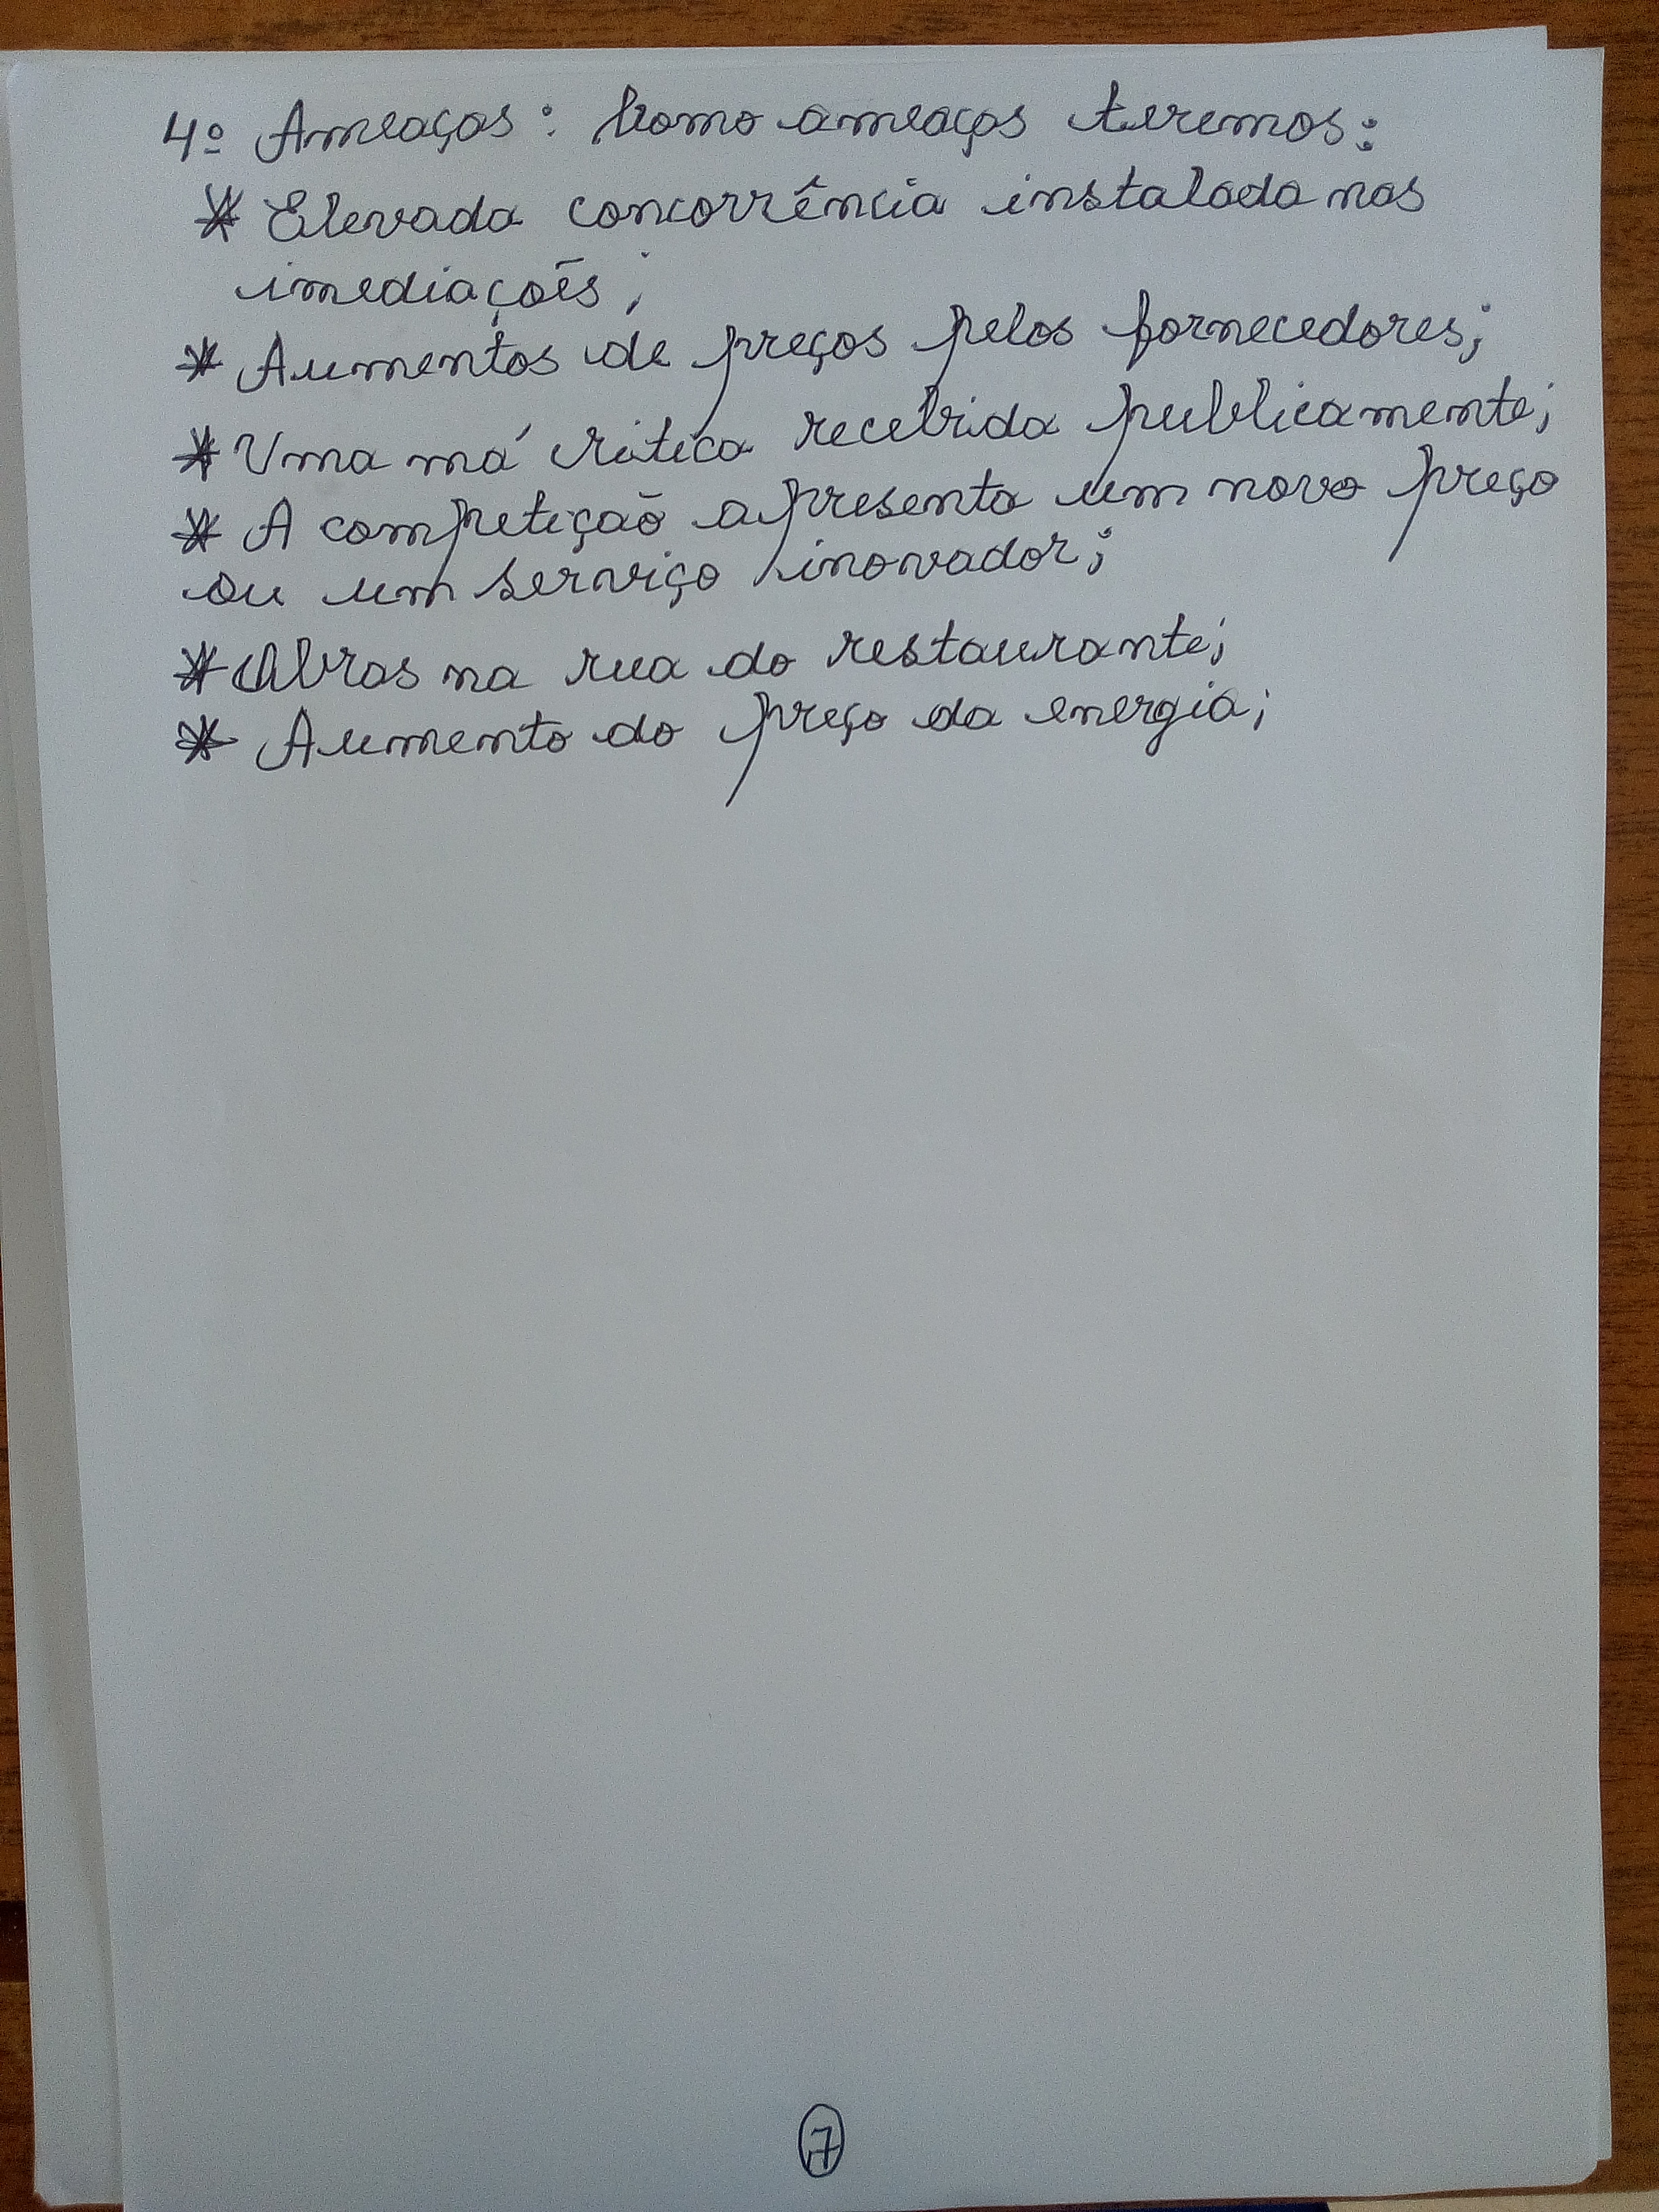 4º Ameaças: Como ameaças teremos:
* Elevada concorrência instalada nas
imediações;
* Aumentos de preços pelos fornecedores;
* Uma má critica recebida publicamente;
* A competição apresenta um novo preço
ou um serviço inovador;
* Obras na rua do restaurante;
* Aumento do preço da energia;
7